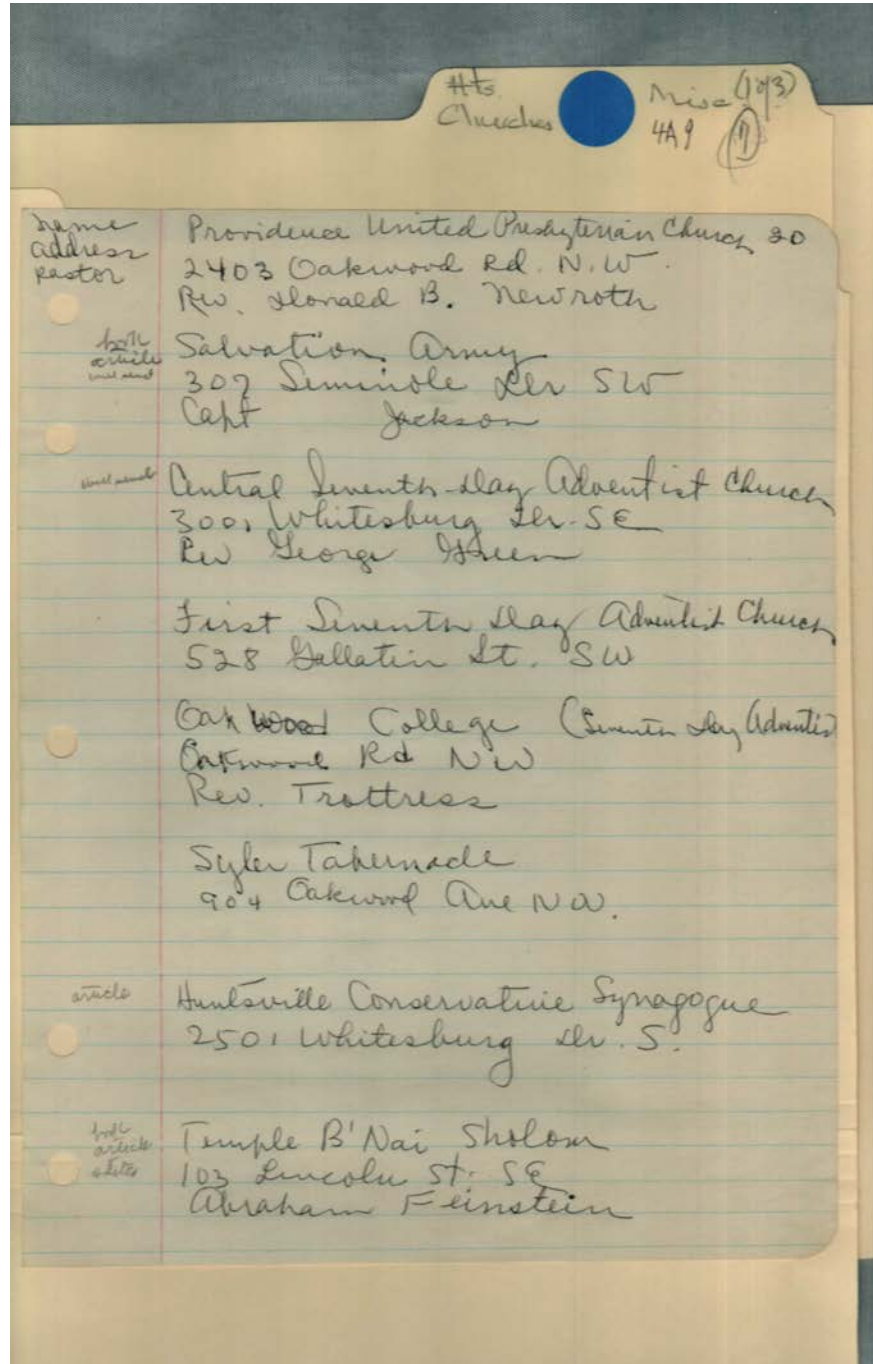 Hts.
Churches
Misc (1 of 3)
4A9
7
name
address
pastor
Providence United Presbyterian Church 20
2403 Oakwood Rd. N.W.
Rev. Donald B. Newroth
both
article
Salvation Army
307 Seminole Dr SW
Capt Jackson
Central Seventh-Day Adventist Church
3001 Whitesburg Dr. SE
Rev George Green
First Seventh Day Adventist Church
528 Gallatin St. SW
Oakwood College (Seventh Day Adventis
Oakwood Rd NW
Rev. Trottress
Syler Tabernacle
904 Oakwood Ave NW.
article
Huntsville Conservative Synagogue
2501 Whitesburg Dr. S.
both
article
Temple B'Nai Sholom
103 Lincoln St. SE
Abraham Feinstein